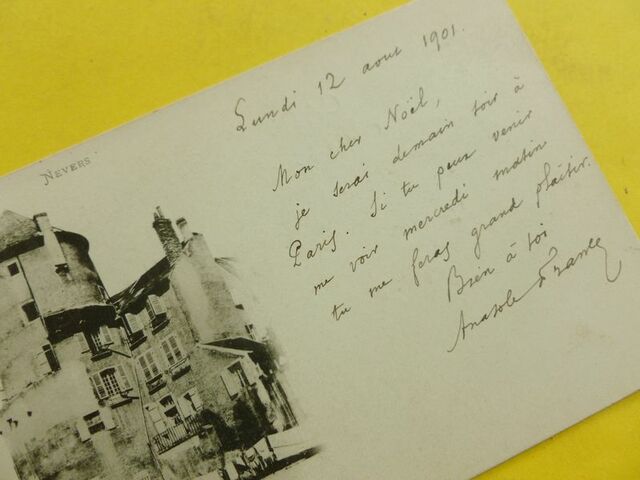 Lundi 12 aout 1901.
Mon cher Noël,
je serai demain soir à
Paris. Si tu peux venir
me voir mercredi matin
tu me feras grand plaisir.
Bien à toi
Anatole France
NEVERS